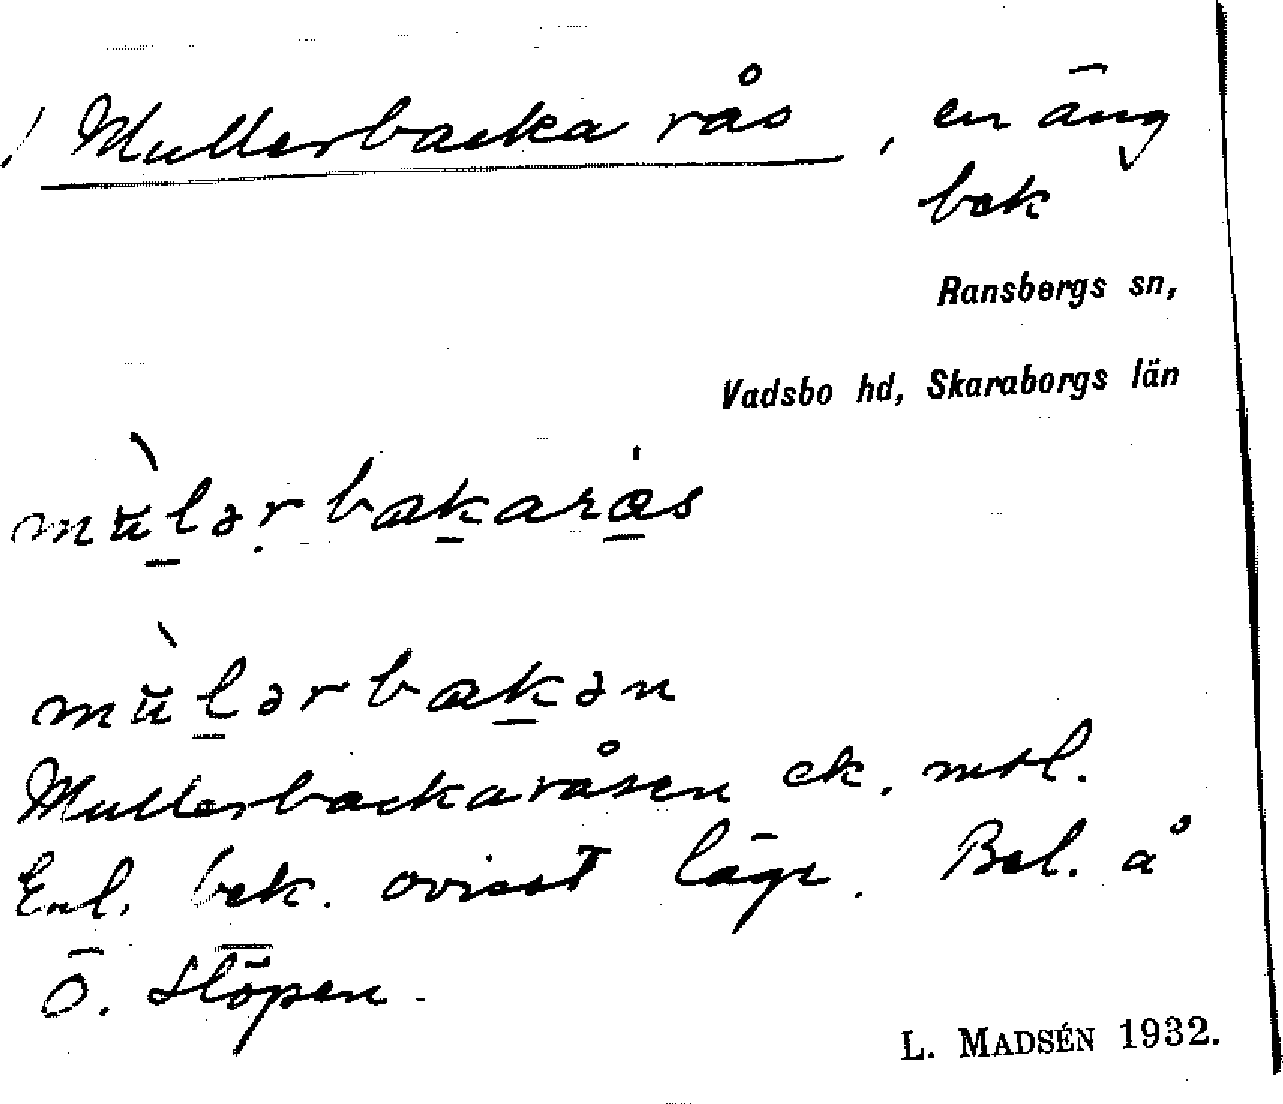 ! Mullerbacka rås, en äng
bek
Ransbergs sn,
Vadsbo hd, Skaraborgs län
mùlər bakarås
mùlərbakən
Mullerbackaråsen ek. mtl.
Enl. bek. ovisst läge. Bel. å
Ö. Slöpen.
L. MADSÉN 1932.